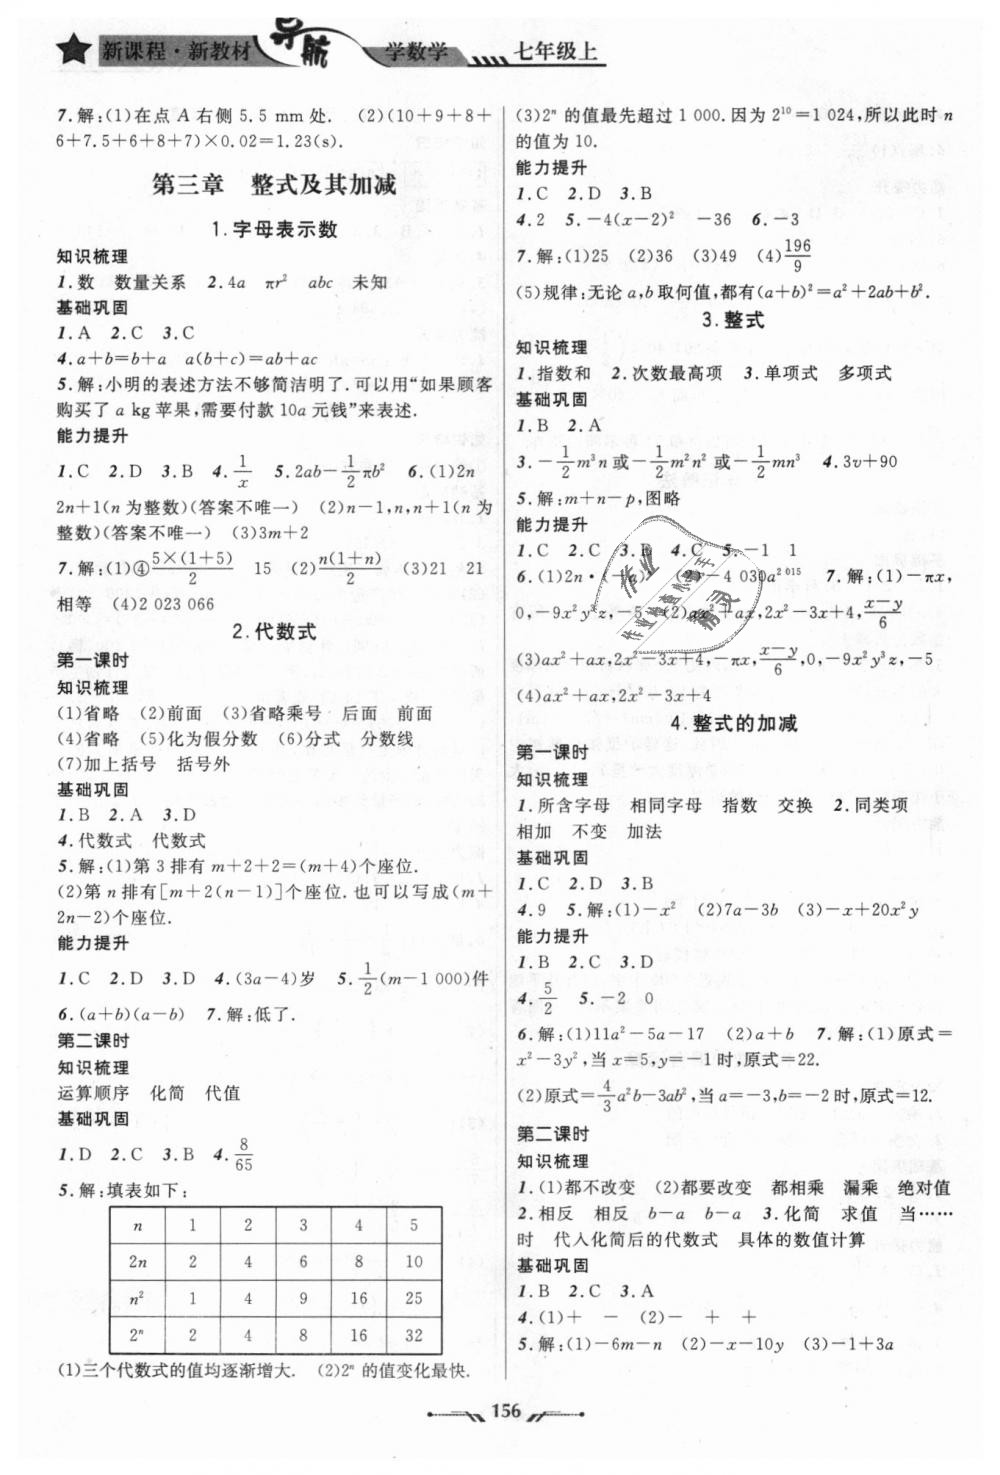 新课程·新教材 导航 学数学 七年级上
7.解:(1)在点 A 右侧 5.5 mm 处. (2)(10+9+8+
6+7.5+6+8+7)×0.02=1.23(s).
第三章 整式及其加减
1.字母表示数
知识梳理
1.数 数量关系 2.4a πr² abc 未知
基础巩固
1.A 2.C 3.C
4.a+b=b+a a(b+c)=ab+ac
5.解:小明的表述方法不够简洁明了.可以用“如果顾客
购买了 a kg 苹果,需要付款 10a 元钱”来表述.
能力提升
1.C 2.D 3.B 4.1/x 5.2ab-1/2πb² 6.(1)2n
2n+1(n 为整数)(答案不唯一) (2)n-1,n,n+1(n 为
整数)(答案不唯一) (3)3m+2
7.解:(1)④5×(1+5)/2 15 (2)n(1+n)/2 (3)21 21
相等 (4)2 023 066
2.代数式
第一课时
知识梳理
(1)省略 (2)前面 (3)省略乘号 后面 前面
(4)省略 (5)化为假分数 (6)分式 分数线
(7)加上括号 括号外
基础巩固
1.B 2.A 3.D
4.代数式 代数式
5.解:(1)第 3 排有 m+2+2=(m+4)个座位.
(2)第 n 排有[m+2(n-1)]个座位.也可以写成(m+
2n-2)个座位.
能力提升
1.C 2.D 3.D 4.(3a-4)岁 5.1/2(m-1 000)件
6.(a+b)(a-b) 7.解:低了.
第二课时
知识梳理
运算顺序 化简 代值
基础巩固
1.D 2.C 3.B 4.8/65
5.解:填表如下:
n 1 2 3 4 5
2n 2 4 6 8 10
n² 1 4 9 16 25
2ⁿ 2 4 8 16 32
(1)三个代数式的值均逐渐增大. (2)2ⁿ 的值变化最快.
(3)2ⁿ 的值最先超过 1 000.因为 2¹⁰=1 024,所以此时 n
的值为 10.
能力提升
1.C 2.D 3.B
4.2 5.-4(x-2)² -36 6.-3
7.解:(1)25 (2)36 (3)49 (4)196/9
(5)规律:无论 a,b 取何值,都有(a+b)²=a²+2ab+b².
3.整式
知识梳理
1.指数和 2.次数最高项 3.单项式 多项式
基础巩固
1.B 2.A
3.-1/2m³n 或-1/2m²n² 或-1/2mn³ 4.3v+90
5.解:m+n-p,图略
能力提升
1.C 2.C 3.B 4.C 5.-1 1
6.(1)2n· 4 030a²⁰¹⁵ 7.解:(1)-πx,
0,-9x²y³z,-5 (2)ax²+ax,2x²-3x+4,x-y/6
(3)ax²+ax,2x²-3x+4,-πx,x-y/6,0,-9x²y³z,-5
(4)ax²+ax,2x²-3x+4
4.整式的加减
第一课时
知识梳理
1.所含字母 相同字母 指数 交换 2.同类项
相加 不变 加法
基础巩固
1.C 2.D 3.B
4.9 5.解:(1)-x² (2)7a-3b (3)-x+20x²y
能力提升
1.B 2.C 3.D
4.5/2 5.-2 0
6.解:(1)11a²-5a-17 (2)a+b 7.解:(1)原式=
x²-3y²,当 x=5,y=-1 时,原式=22.
(2)原式=4/3a²b-3ab²,当 a=-3,b=-2 时,原式=12.
第二课时
知识梳理
1.(1)都不改变 (2)都要改变 都相乘 漏乘 绝对值
2.相反 相反 b-a b-a 3.化简 求值 当……
时 代入化简后的代数式 具体的数值计算
基础巩固
1.B 2.C 3.A
4.(1)+ - (2)- + +
5.解:(1)-6m-n (2)-x-10y (3)-1+3a
156